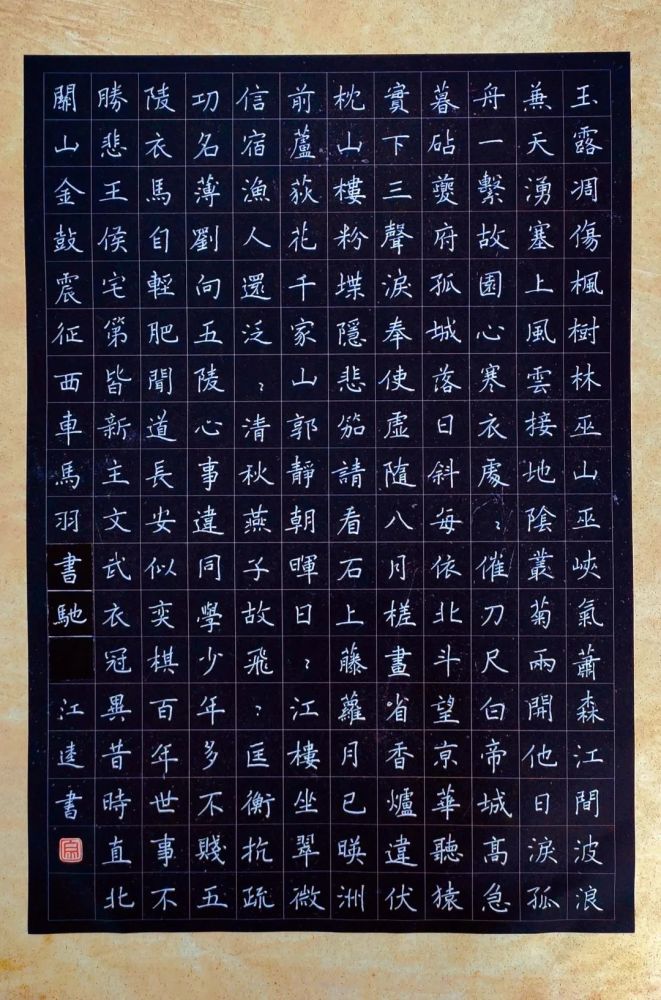 玉露凋傷楓樹林巫山巫峽氣蕭森江間波浪
兼天湧塞上風雲接地陰叢菊兩開他日淚孤
舟一繫故園心寒衣處：催刀尺白帝城高急
暮砧夔府孤城落日斜每依北斗望京華聽猿
實下三聲淚奉使虛隨八月槎畫省香爐違伏
枕山樓粉堞隱悲笳請看石上藤蘿月已暎洲
前蘆荻花千家山郭靜朝暉日：江樓坐翠微
信宿漁人還泛：清秋燕子故飛：匡衡抗疏
功名薄劉向五陵心事違同學少年多不賤五
陵衣馬自輕肥聞道長安似奕棋百年世事不
勝悲王侯宅第皆新主文武衣冠異昔時直北
關山金鼓震征西車馬羽書馳 江逵書